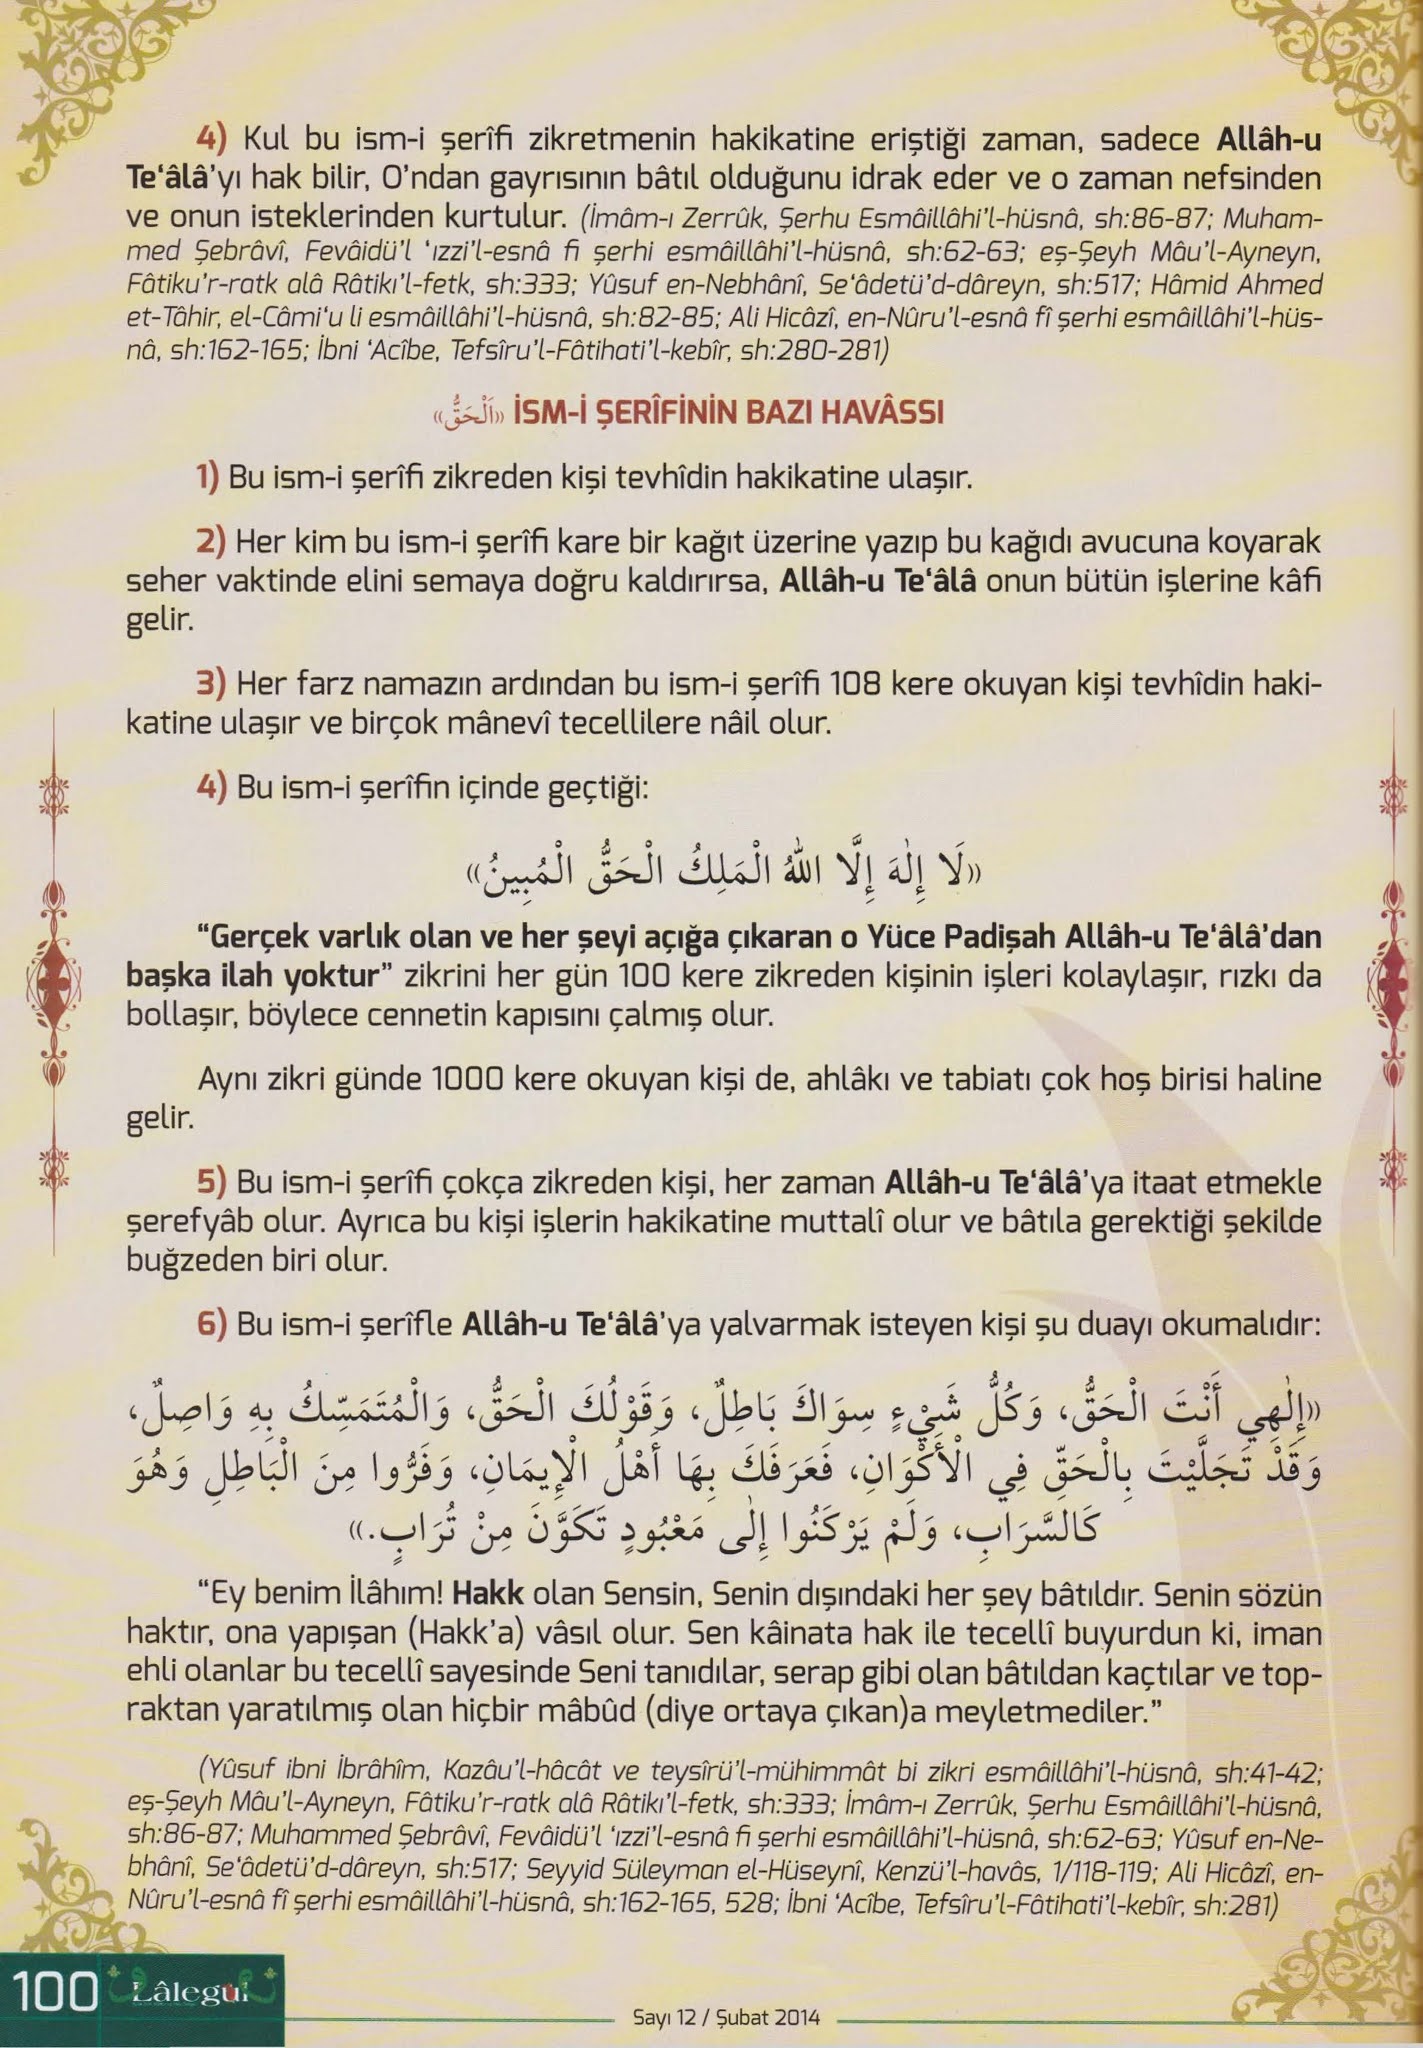 4) Kul bu ism-i şerîfi zikretmenin hakikatine eriştiği zaman, sadece Allâh-u
Te‘âlâ’yı hak bilir, O’ndan gayrısının bâtıl olduğunu idrak eder ve o zaman nefsinden
ve onun isteklerinden kurtulur. (İmâm-ı Zerrûk, Şerhu Esmâillâhi’l-hüsnâ, sh:86-87; Muham-
med Şebrâvî, Fevâidü’l ‘ızzi’l-esnâ fi şerhi esmâillâhi’l-hüsnâ, sh:62-63; eş-Şeyh Mâu’l-Ayneyn,
Fâtiku’r-ratk alâ Râtikı’l-fetk, sh:333; Yûsuf en-Nebhânî, Se‘âdetü’d-dâreyn, sh:517; Hâmid Ahmed
et-Tâhir, el-Câmi‘u li esmâillâhi’l-hüsnâ, sh:82-85; Ali Hicâzî, en-Nûru’l-esnâ fî şerhi esmâillâhi’l-hüs-
nâ, sh:162-165; İbni ‘Acîbe, Tefsîru’l-Fâtihati’l-kebîr, sh:280-281)
«اَلْحَقُّ» İSM-İ ŞERÎFİNİN BAZI HAVÂSSI
1) Bu ism-i şerîfi zikreden kişi tevhîdin hakikatine ulaşır.
2) Her kim bu ism-i şerîfi kare bir kağıt üzerine yazıp bu kağıdı avucuna koyarak
seher vaktinde elini semaya doğru kaldırırsa, Allâh-u Te‘âlâ onun bütün işlerine kâfi
gelir.
3) Her farz namazın ardından bu ism-i şerîfi 108 kere okuyan kişi tevhîdin haki-
katine ulaşır ve birçok mânevî tecellilere nâil olur.
4) Bu ism-i şerîfin içinde geçtiği:
«لَا إِلٰهَ إِلَّا اللهُ الْمَلِكُ الْحَقُّ الْمُبِينُ»
“Gerçek varlık olan ve her şeyi açığa çıkaran o Yüce Padişah Allâh-u Te‘âlâ’dan
başka ilah yoktur” zikrini her gün 100 kere zikreden kişinin işleri kolaylaşır, rızkı da
bollaşır, böylece cennetin kapısını çalmış olur.
Aynı zikri günde 1000 kere okuyan kişi de, ahlâkı ve tabiatı çok hoş birisi haline
gelir.
5) Bu ism-i şerîfi çokça zikreden kişi, her zaman Allâh-u Te‘âlâ’ya itaat etmekle
şerefyâb olur. Ayrıca bu kişi işlerin hakikatine muttalî olur ve bâtıla gerektiği şekilde
buğzeden biri olur.
6) Bu ism-i şerîfle Allâh-u Te‘âlâ’ya yalvarmak isteyen kişi şu duayı okumalıdır:
«إِلٰهِي أَنْتَ الْحَقُّ، وَكُلُّ شَيْءٍ سِوَاكَ بَاطِلٌ، وَقَوْلُكَ الْحَقُّ، وَالْمُتَمَسِّكُ بِهِ وَاصِلٌ،
وَقَدْ تَجَلَّيْتَ بِالْحَقِّ فِي الْأَكْوَانِ، فَعَرَفَكَ بِهَا أَهْلُ الْإِيمَانِ، وَفَرُّوا مِنَ الْبَاطِلِ وَهُوَ
كَالسَّرَابِ، وَلَمْ يَرْكَنُوا إِلٰى مَعْبُودٍ تَكَوَّنَ مِنْ تُرَابٍ.»
“Ey benim İlâhım! Hakk olan Sensin, Senin dışındaki her şey bâtıldır. Senin sözün
haktır, ona yapışan (Hakk’a) vâsıl olur. Sen kâinata hak ile tecellî buyurdun ki, iman
ehli olanlar bu tecellî sayesinde Seni tanıdılar, serap gibi olan bâtıldan kaçtılar ve top-
raktan yaratılmış olan hiçbir mâbûd (diye ortaya çıkan)a meyletmediler.”
(Yûsuf ibni İbrâhîm, Kazâu’l-hâcât ve teysîrü’l-mühimmât bi zikri esmâillâhi’l-hüsnâ, sh:41-42;
eş-Şeyh Mâu’l-Ayneyn, Fâtiku’r-ratk alâ Râtikı’l-fetk, sh:333; İmâm-ı Zerrûk, Şerhu Esmâillâhi’l-hüsnâ,
sh:86-87; Muhammed Şebrâvî, Fevâidü’l ‘ızzi’l-esnâ fi şerhi esmâillâhi’l-hüsnâ, sh:62-63; Yûsuf en-Ne-
bhânî, Se‘âdetü’d-dâreyn, sh:517; Seyyid Süleyman el-Hüseynî, Kenzü’l-havâs, 1/118-119; Ali Hicâzî, en-
Nûru’l-esnâ fî şerhi esmâillâhi’l-hüsnâ, sh:162-165, 528; İbni ‘Acîbe, Tefsîru’l-Fâtihati’l-kebîr, sh:281)
100 Lâlegül
Sayı 12 / Şubat 2014